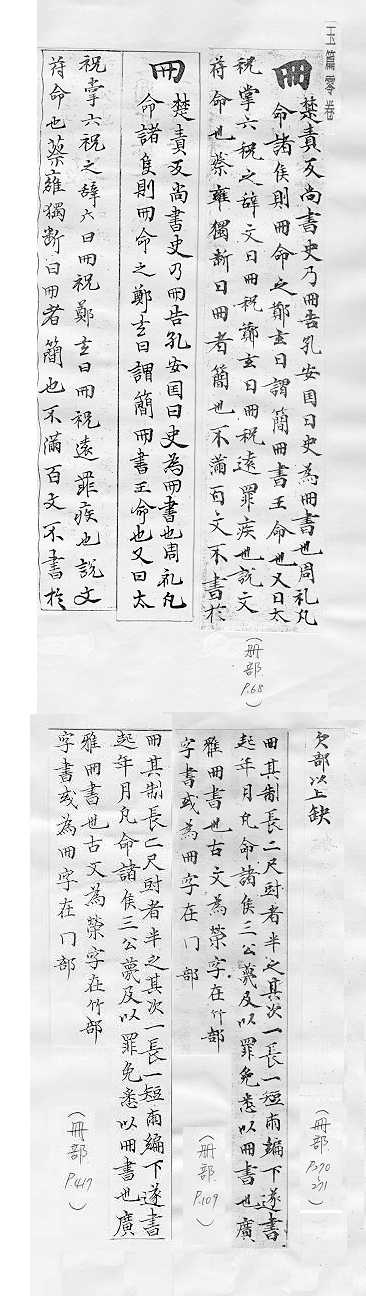 玉篇零卷
冊 楚責反尚書史乃冊告孔安国曰史為冊書也周礼凡
命諸侯則冊命之鄭玄曰謂簡冊書王命也又曰太
祝掌六祝之辞文曰冊祝鄭玄曰冊祝遠罪疾也說文
符命也蔡雍獨断曰冊者簡也不滿百文不書於
(册部 P.68)
冊 楚責反尚書史乃冊告孔安国曰史為冊書也周礼凡
命諸侯則冊命之鄭玄曰謂簡冊書王命也又曰太
祝掌六祝之辞六曰冊祝鄭玄曰冊祝遠罪疾也說文
符命也蔡雍獨断曰冊者簡也不滿百文不書於
欠部以上缺
(冊部 P.270 271)
冊其制長二尺尌者半之其次一長一短兩編下遂書
起年月凡命諸侯三公薨及以罪免悉以冊書也廣
雅冊書也古文為字在竹部
字書或為冊字在冂部
(册部 P.109)
冊其制長二尺尌者半之其次一長一短兩編下遂書
起年月凡命諸侯三公薨及以罪免悉以冊書也廣
雅冊書也古文為字在竹部
字書或為冊字在冂部
(冊部 P.417)